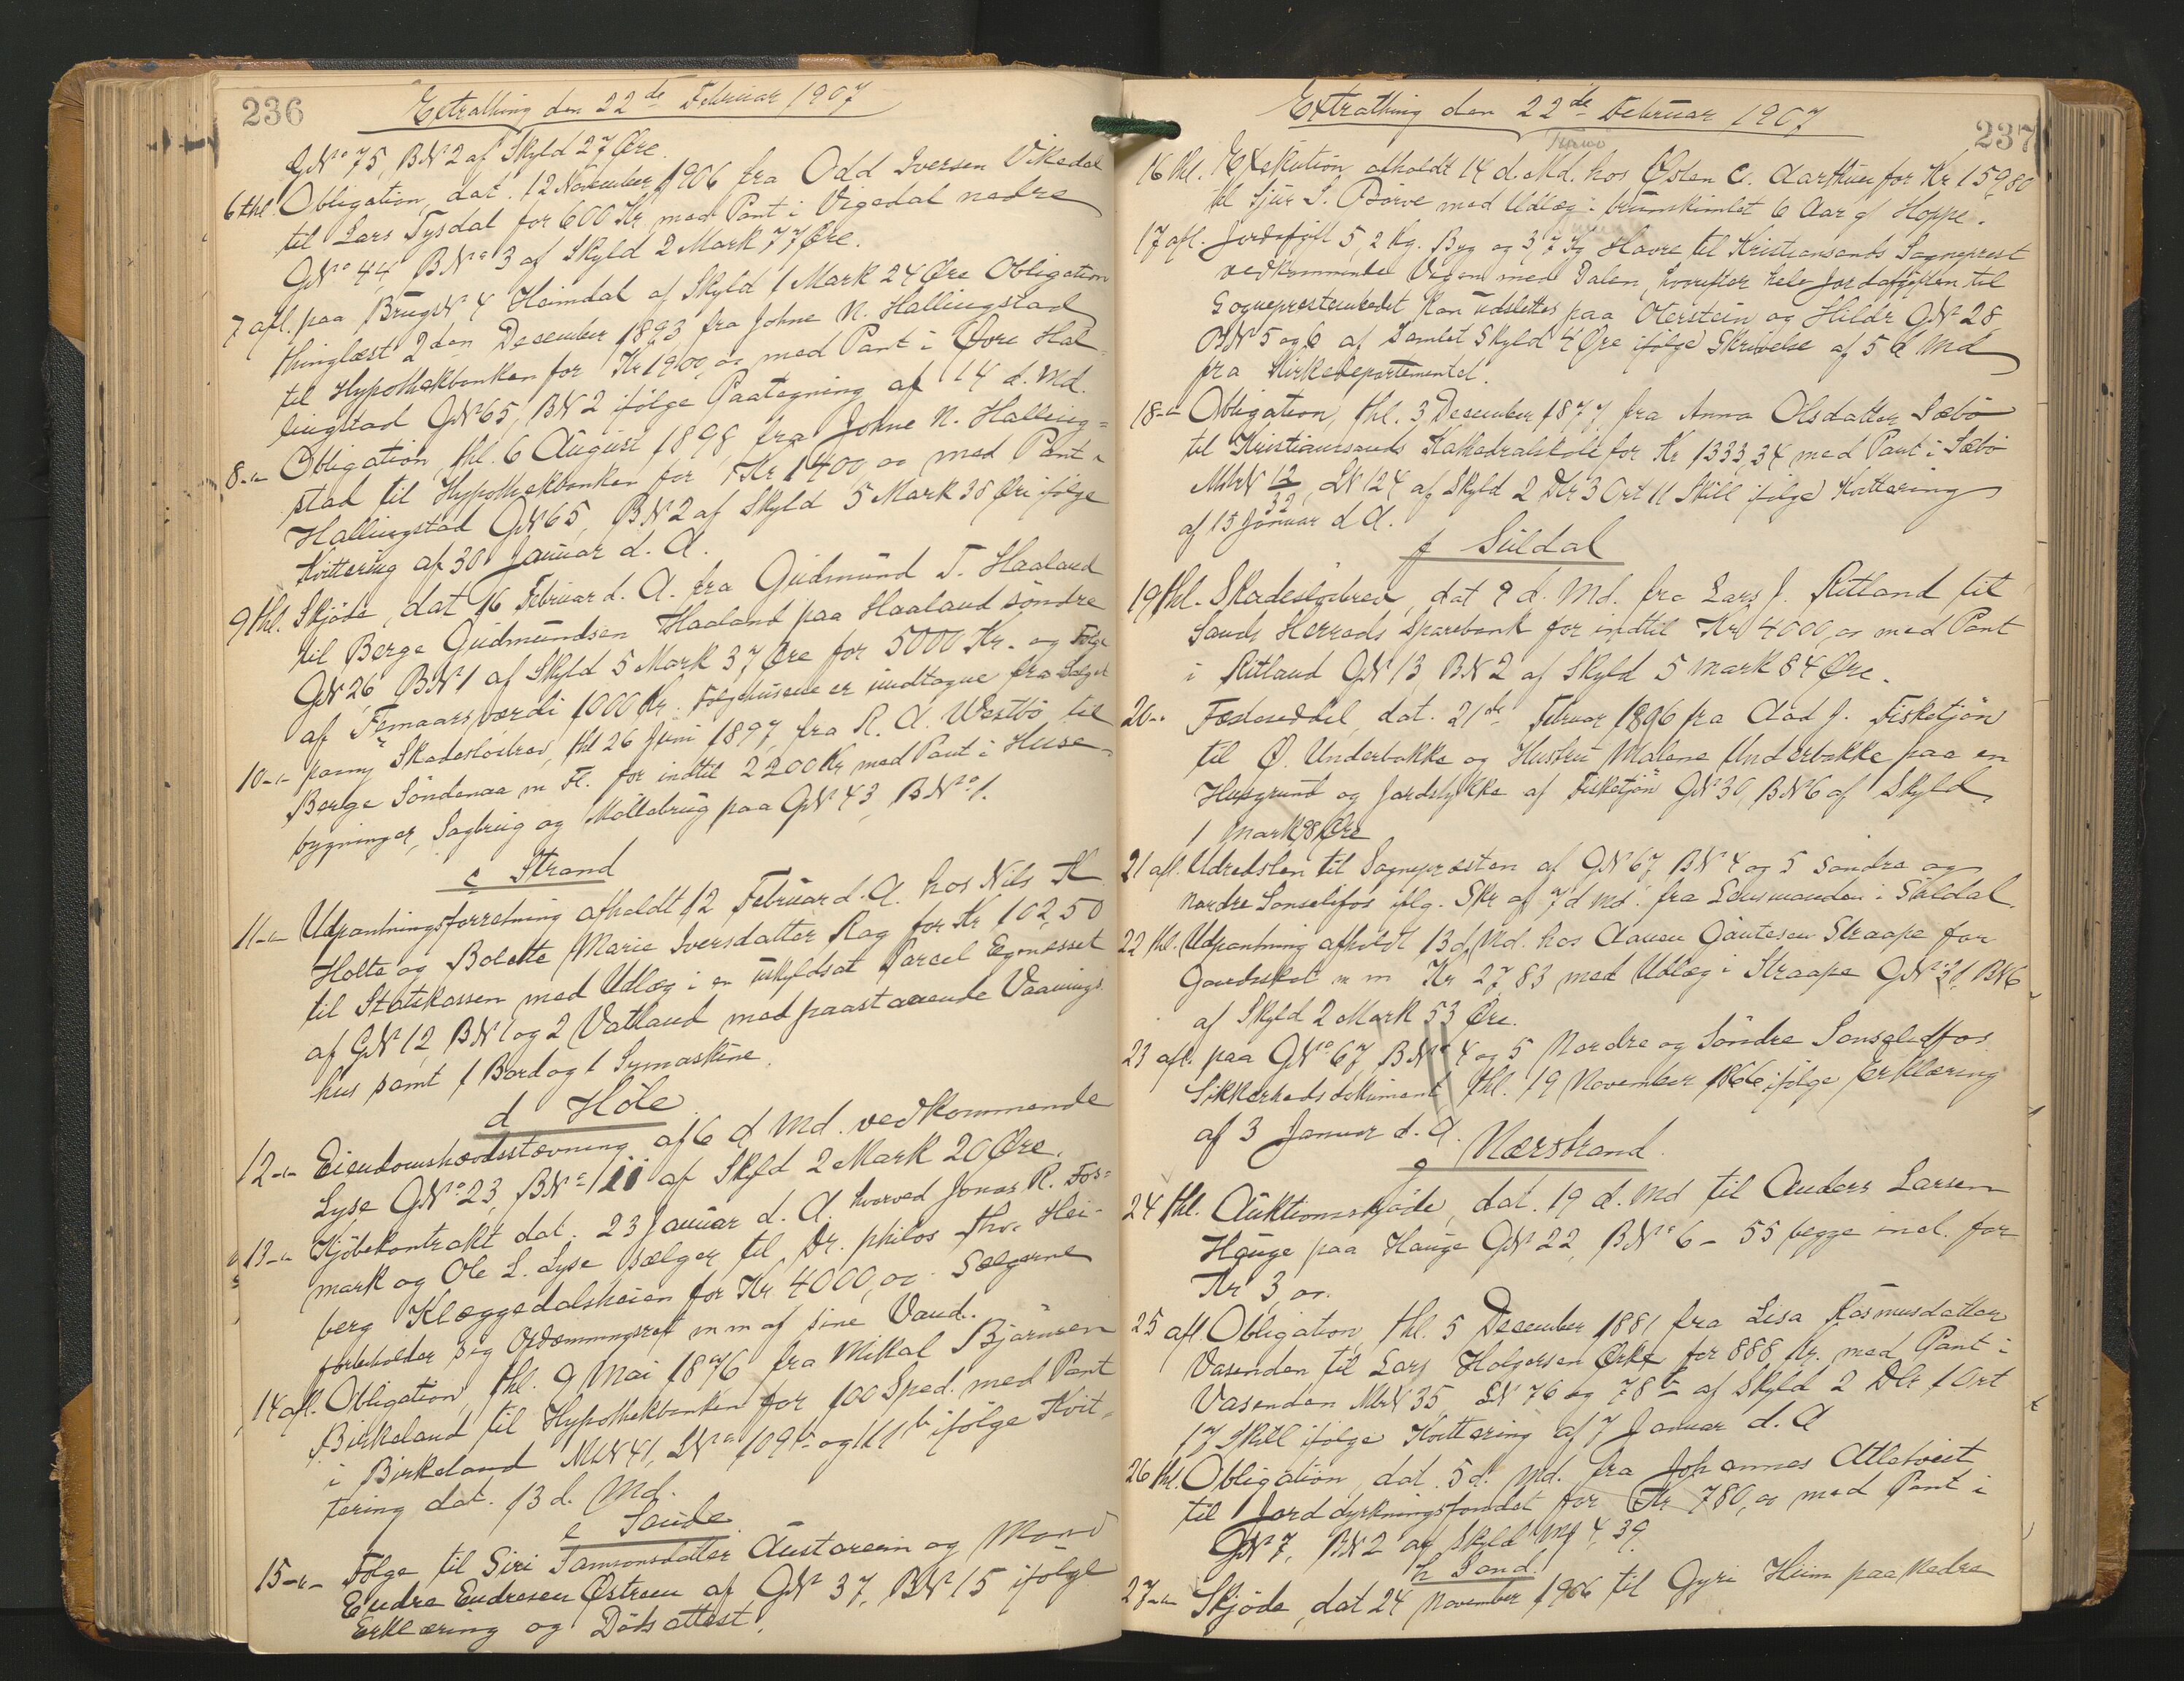 236
Extrathing den 22de Februar 1907
GNo 75, BN 2 af Skyld 27 Øre.
6 thl. Obligation, dat. 12 November 1906 fra Odd Iversen Vikedal
til Lars Tysdal for 600 Kr. med Pant i Vigedal nedre
GNo 44, BNo 3 af Skyld 2 Mark 77 Øre.
7 afl. paa BrugsN 4 Heimdal af Skyld 1 Mark 24 Øre Obligation
thinglæst 2den December 1893 fra Johne N. Hallingstad
til Hypothekbanken for Kr 1900,00 med Pant i Øvre Hal-
lingstad GN 65, BN 2 ifølge Paategning af 14 d. Md.
8-"- Obligation, thl. 6 August 1898, fra Johne N. Halling=
stad til Hypothekbanken for Kr 1400,00 med Pant i
Hallingstad GN 65, BN 2 af Skyld 5 Mark 38 Øre ifølge
Kvittering af 30 Januar d. A.
9 thl. Skjøde, dat 16 Februar d. A. fra Gudmund T. Haaland
til Berge Gudmundsen Haaland paa Haaland søndre
GN 26, BN 1 af Skyld 5 Mark 37 Øre for 5000 Kr. og Følge
af Femaarsværdi 1000 Kr. Følgehusene er undtagne fra Salget
10-"- paany Skadesløsbrev, thl 26 Juni 1897, fra R. A. Westbö til
Berge Söndenaa m Fl. for indtil 2200 Kr med Pant i Huse-
bygninger, Sagbrug og Möllebrug paa GN 43, BNo 1.
c Strand
11-"- Udpantningsforretning afholdt 12 Februar d. A. hos Nils K
Holte og Bolette Marie Iversdatter Rag for Kr 102,50
til Statskassen med Udlæg i en uskyldsat Parcel Egnesset
af GN 12, BN 1 og 2 Vatland med paastaaende Vaanings-
hus samt 1 Bord og 1 Symaskine.
d Höle
12-"- Eiendomshævdsstævning af 6 d Md. vedkommende
Lyse GNo 23, BNo 1 af Skyld 2 Mark 20 Øre.
13-"- Kjöbekontrakt dat. 23 Januar d. A. hvorved Jonas R. Fos=
mark og Ole L. Lyse sælger til Dr. philos Thv. Hei-
berg Klæggedalsheien for Kr 4000,00. Sælgerne
forbeholder sig Opdæmningsret m m af sine Vand.
14 afl. Obligation, thl. 9 Mai 1876 fra Mikal Bjørnsen
Birkeland til Hypothekbanken for 100 Spd. med Pant
i Birkeland MN 41, LNo 109b og 111b ifølge Kvit-
tering dat. 13 d. Md.
e Saude
15-"- Følge til Siri Samsonsdatter Austarein og Mand
Endre Endresen Østreen af GNo 37, BNo 15 ifølge
Erklæring og Dödsattest.
237
Extrathing den 22de Februar 1907
16 thl. Exekution afholdt 14 d. Md. hos Østen C. Aarthun for Kr 159,80
til Sjur S. Börve med Udlæg i brunskimlet 6 Aar gl Hoppe.
17 afl. Jordafgift 5,2 Kg. Byg og 37 Kg Havre til Kristiansands Sogneprest
vedkommende Vigen med Dalen, hvorefter hele Jordafgiften til
Sogneprestembedet kan udslettes paa Oterstein og Hilde GNo 28,
BN 5 og 6 af samlet Skyld 4 Øre ifølge Skrivelse af 5 d Md
fra Kirkedepartementet.
18-"- Obligation, thl. 3 December 1877 fra Anna Olsdatter Sæbö
til Kristianssands Kathedralskole for Kr 1333,34 med Pant i Sæbö
MtrN 12/32, LN 124 af Skyld 2 Dlr 3 Ort 11 Skill ifølge Kvittering
af 15 Januar d A.
f Suldal
19 thl. Skadesløsbrev, dat 9 d. Md. fra Lars J. Ritland til
Sands Herreds Sparebank for indtil Kr 4000,00 med Pant
i Ritland GN 13, BN 2 af Skyld 5 Mark 84 Øre.
20-"- Fæsteseddel, dat. 21de Februar 1896 fra Aad J. Fisketjön
til Ø. Underbakke og Hustru Malene Underbakke paa en
Husgrund og Jordstykke af Fisketjön GNo 30, BN 6 af Skyld
1 Mark 98 Øre
21 afl. Udredslen til Sognepresten af GNo 67 BN 4 og 5 Søndre og
Nordre Sonselifos iflg. Skr af 7 d Md. fra Lensmanden i Suldal.
22 thl. Udpantning afholdt 13 d Md. hos Aanen Gautesen Straape for
Jordskat m m Kr 27,83 med Udlæg i Straape GNo 31, BN 6
af Skyld 2 Mark 53 Øre.
23 afl. paa GNo 67, BNo 4 og 5 Nordre og Söndre Sonseledfos
Sikkerhedsdokument thl. 19 November 1866 ifølge Erklæring
af 3 Januar d. A.
g Nærstrand
24 thl. Auktionsskjöde, dat. 19 d. Md til Anders Larsen
Hauge paa Hauge GNo 22, BNo 6 - 55 begge incl. for
Kr 3,00.
25 afl. Obligation, thl. 5 December 1881 fra Lisa Rasmusdatter
Vasenden til Lars Halgersen Ørke for 888 Kr. med Pant i
Vasenden MtrN 35, LN 76 og 78b af Skyld 2 Dlr 1 Ort
17 Skill ifølge Kvittering af 7 Januar d. A
26 thl. Obligation, dat. 5 d. Md. fra Johannes Atletveit
til Jorddyrkningsfondet for Kr 780,00 med Pant i
GNo 7, BN 2 af Skyld Mg 4,39.
h Sand.
27-"- Skjöde, dat 24 November 1906 til Gyri Hiim paa Nedre